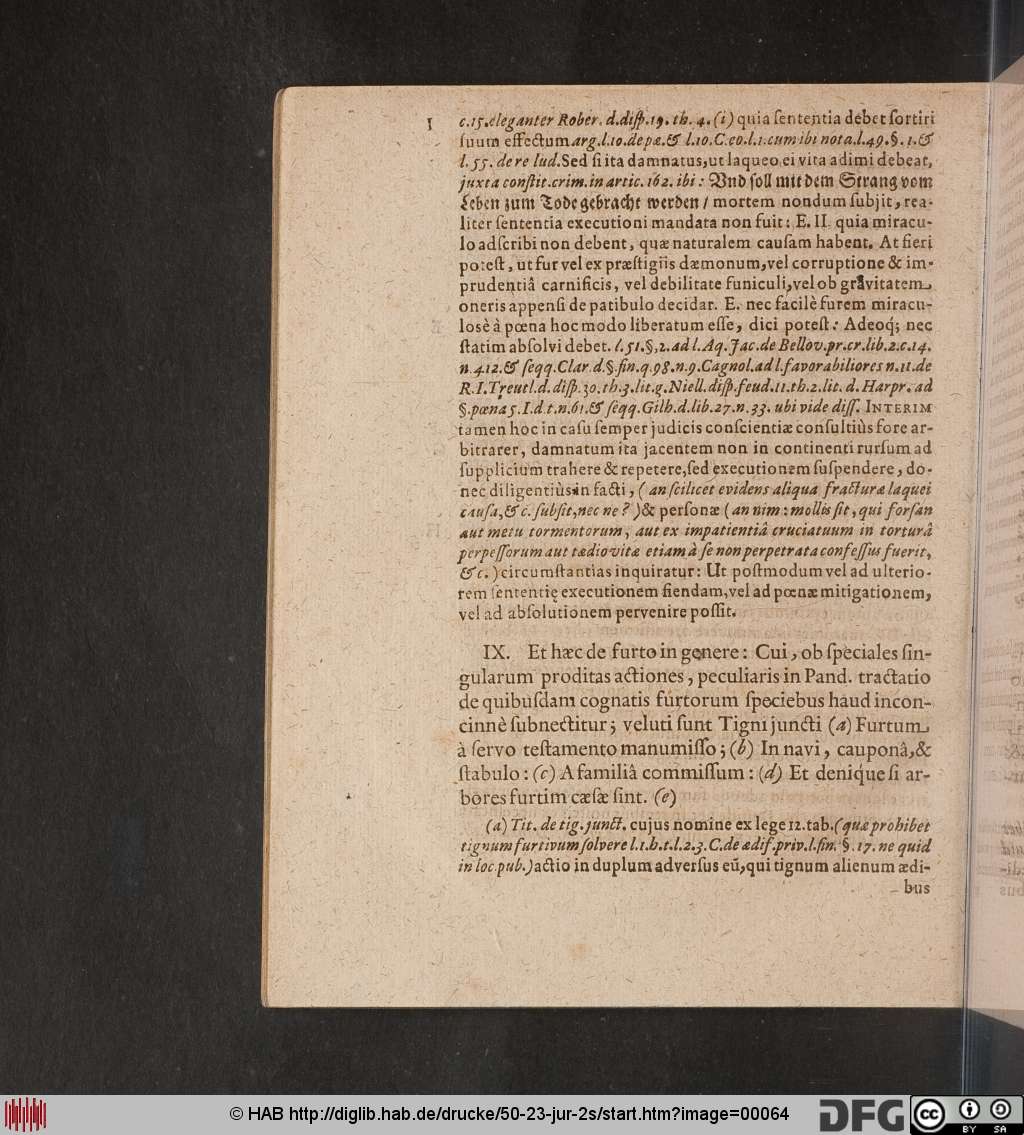 I c.15. eleganter Rober. d. disp. 19. th. 4. (i) quia sententia debet sortiri
suum effectum arg. l. 10. de pæ. & l. 10. C. eo. l. 1. cum ibi nota. l. 49. §. 1. &
l. 55. de re lud. Sed si ita damnatus, ut laqueo ei vita adimi debeat,
juxta constit. crim. in artic. 162. ibi: Vnd soll mit dem Strang vom
Leben zum Tode gebracht werden / mortem nondum subjit, rea-
liter sententia executioni mandata non fuit: E. II. quia miracu-
lo adscribi non debent, quæ naturalem causam habent. At fieri
potest, ut fur vel ex præstigiis dæmonum, vel corruptione & im-
prudentiâ carnificis, vel debilitate funiculi, vel ob gravitatem
oneris appensi de patibulo decidar. E. nec facilè furem miracu-
losè à pœna hoc modo liberatum esse, dici potest: Adeoq; nec
statim absolvi debet. l. 51. §. 2. ad l. Aq. Jac. de Bellov. pr. cr. lib. 2. c. 14.
n. 412. & seqq. Clar. d. §. fin. q. 98. n. 9. Cagnol. ad l. favorabiliores n. 11. de
R. I. Treutl. d. disp. 30. th. 3. lit. g. Niell. disp. feud. 11. th. 2. lit. d. Harpr. ad
§. pœna 5. I. d. t. n. 61. & seqq. Gilh. d. lib. 27. n. 33. ubi vide diss. INTERIM
tamen hoc in casu semper judicis conscientiæ consultiùs fore ar-
bitrarer, damnatum ita jacentem non in continenti rursum ad
supplicium trahere & repetere, sed executionem suspendere, do-
nec diligentiùs in facti, (an scilicet evidens aliqua fracturæ laquei
causa, & c. subsit, nec ne?) & personæ (an nim: mollis sit, qui forsan
aut metu tormentorum, aut ex impatientiâ cruciatuum in torturâ
perpessorum aut tædio vitæ etiam à se non perpetrata confessus fuerit,
& c.) circumstantias inquiratur: Ut postmodum vel ad ulterio-
rem sententię executionem fiendam, vel ad pœnæ mitigationem,
vel ad absolutionem pervenire possit.
IX. Et hæc de furto in genere: Cui, ob speciales sin-
gularum proditas actiones, peculiaris in Pand. tractatio
de quibusdam cognatis furtorum speciebus haud incon-
cinnè subnectitur; veluti sunt Tigni juncti (a) Furtum
à servo testamento manumisso; (b) In navi, cauponâ, &
stabulo: (c) A familiâ commissum: (d) Et denique si ar-
bores furtim cæsæ sint. (e)
(a) Tit. de tig. junct. cujus nomine ex lege 12. tab. (quæ prohibet
tignum furtivum solvere l. 1. h. t. l. 2. 3. C. de ædif. priv. l. fin. §. 17. ne quid
in loc. pub.) actio in duplum adversus eũ, qui tignum alienum ædi-
bus
© HAB http://diglib.hab.de/drucke/50-23-jur-2s/start.htm?image=00064
DFG
cc BY SA